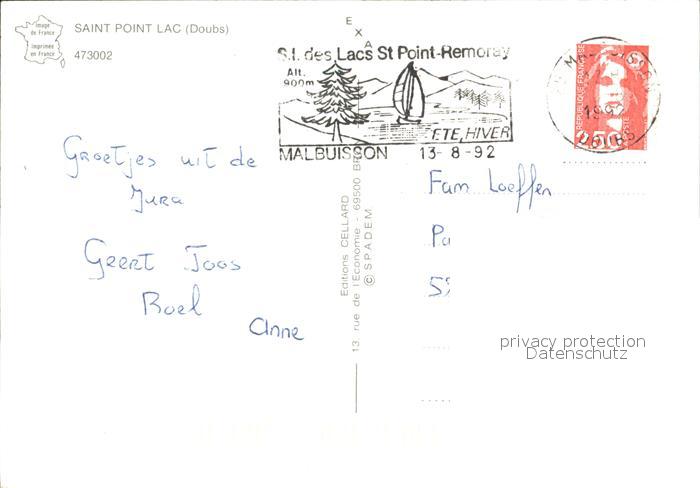 Image
de France
Imprimée
en France
SAINT POINT LAC (Doubs)
473002
EXA
S.I. des Lacs St Point-Remoray
Alt.
900m
ETE, HIVER
MALBUISSON 13-8-92
1992
DOUBS
REPUBLIQUE FRANÇAISE
2,50
Groetjes uit de
Jura
Geert Joos
Roel
Anne
Fam Loeffen
Pa
Editions CELLARD
13, rue de l'Economie - 69500 BR
© SPADEM
privacy protection
Datenschutz